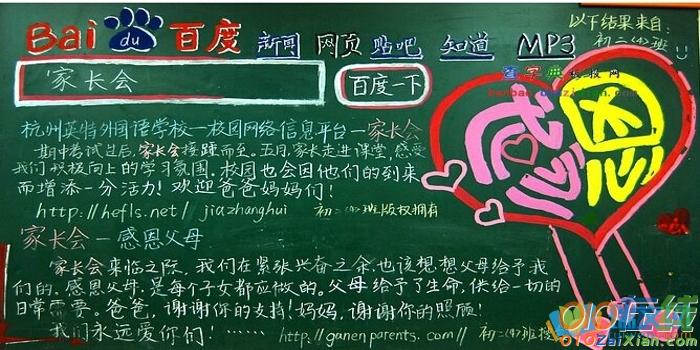 以下结果来自:
初二(4)班
Bai du 百度 新闻 网页 贴吧 知道 MP3
家长会 百度一下
查字典板报网
banbao.chazidian.com
感恩
杭州英特外国语学校—校园网络信息平台—家长会
期中考试过后,家长会接踵而至。五月,家长走进课堂,感受
我们积极向上的学习氛围。校园也会因他们的到来
而增添一分活力!欢迎爸爸妈妈们!
http://hefls.net/jiazhanghui 初二(4)班版权拥有
家长会—感恩父母
家长会来临之际,我们在紧张兴奋之余,也该想想父母给予我
们的。感恩父母,是每个子女都应做的。父母给予了生命,供给一切的
日常需要。爸爸,谢谢你的支持!妈妈,谢谢你的照顾!
我们永远爱你们!……http://ganenparents.com// 初二(4)班
010在线
010ZaiXian.com